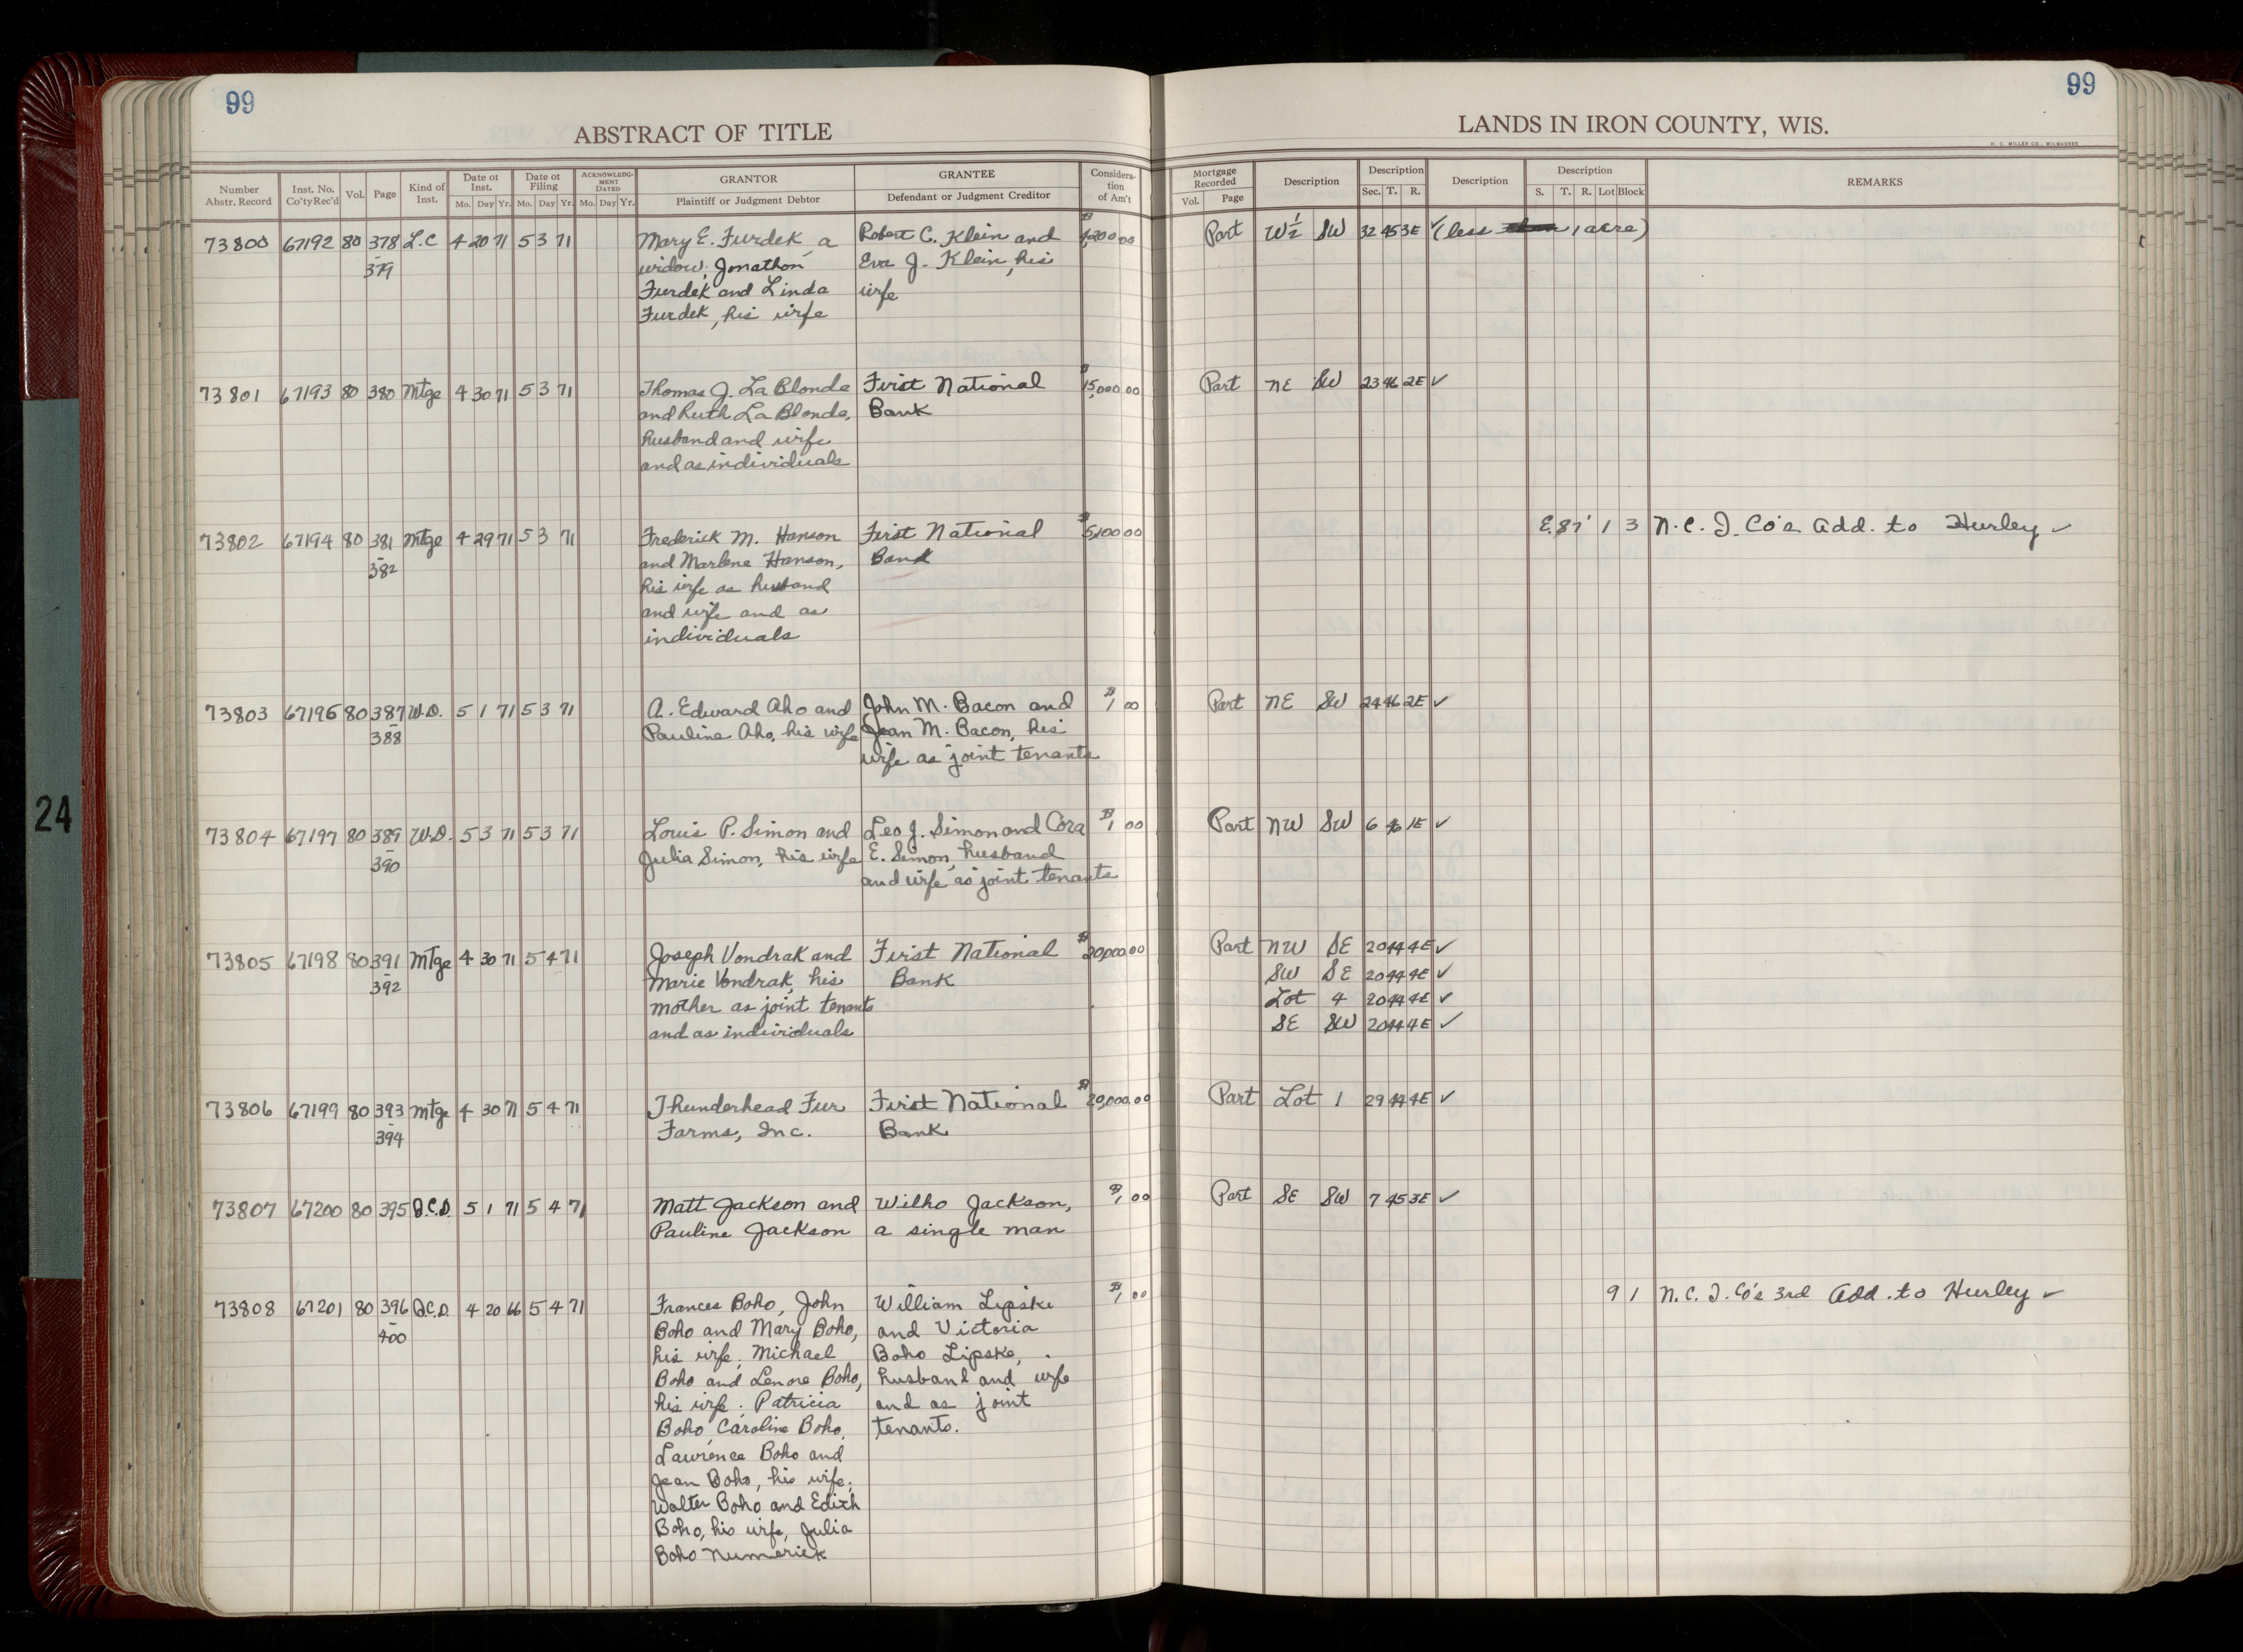 99
99
ABSTRACT OF TITLE
LANDS IN IRON COUNTY, WIS.
H. C. MILLER CO., MILWAUKEE
Number Abstr. Record Inst. No. Co'ty Rec'd Vol. Page Kind of Inst. Date of Inst. Mo. Day Yr. Date of Filing Mo. Day Yr. ACKNOWLEDG-MENT DATED Mo. Day Yr. GRANTOR Plaintiff or Judgment Debtor GRANTEE Defendant or Judgment Creditor Considera-tion of Am't Mortgage Recorded Vol. Page Description Description Sec. T. R. Description Description S. T. R. Lot Block REMARKS
73800 67192 80 378 L.C 4 20 71 5 3 71 Mary E. Furdek, a Robert C. Klein and $ 00 Part W½ SW 32 45 3E ✓ (less 1 acre)
- 379 widow; Jonathon Eva J. Klein, his
Furdek and Linda wife
Furdek, his wife
73801 67193 80 380 Mtge 4 30 71 5 3 71 Thomas J. La Blonde First National $15,000 00 Part NE SW 23 46 2E ✓
and Ruth La Blonde, Bank
husband and wife
and as individuals
73802 67194 80 381 Mtge 4 29 71 5 3 71 Frederick M. Hanson First National $5,100 00 E. 87' 1 3 N.C.I. Co's. Add. to Hurley ✓
- 382 and Marlene Hanson, Bank
his wife as husband
and wife and as
individuals
73803 67196 80 387 W.D. 5 1 71 5 3 71 A. Edward Aho and John M. Bacon and $1 00 Part NE SW 24 46 2E ✓
- 388 Pauline Aho, his wife Jean M. Bacon, his
wife as joint tenants
73804 67197 80 389 W.D. 5 3 71 5 3 71 Louis P. Simon and Leo J. Simon and Cora $1 00 Part NW SW 6 46 1E ✓
- 390 Julia Simon, his wife E. Simon, husband
and wife as joint tenants
73805 67198 80 391 Mtge 4 30 71 5 4 71 Joseph Vondrak and First National $20,000 00 Part NW SE 20 44 4E ✓
- 392 Marie Vondrak, his Bank SW SE 20 44 4E ✓
mother as joint tenants Lot 4 20 44 4E ✓
and as individuals SE SW 20 44 4E ✓
73806 67199 80 393 Mtge 4 30 71 5 4 71 Thunderhead Fur First National $20,000 00 Part Lot 1 29 44 4E ✓
- 394 Farms, Inc. Bank
73807 67200 80 395 Q.C.D. 5 1 71 5 4 71 Matt Jackson and Wilho Jackson, $1 00 Part SE SW 7 45 3E ✓
Pauline Jackson a single man
73808 67201 80 396 Q.C.D. 4 20 66 5 4 71 Frances Boho, John William Lipske $1 00 9 1 N.C.I. Co's 3rd Add. to Hurley ✓
- 400 Boho and Mary Boho, and Victoria
his wife; Michael Boho Lipske,
Boho and Lenore Boho, husband and wife
his wife; Patricia and as joint
Boho, Caroline Boho, tenants.
Lawrence Boho and
Jean Boho, his wife;
Walter Boho and Edith
Boho, his wife, Julia
Boho Numerick
24